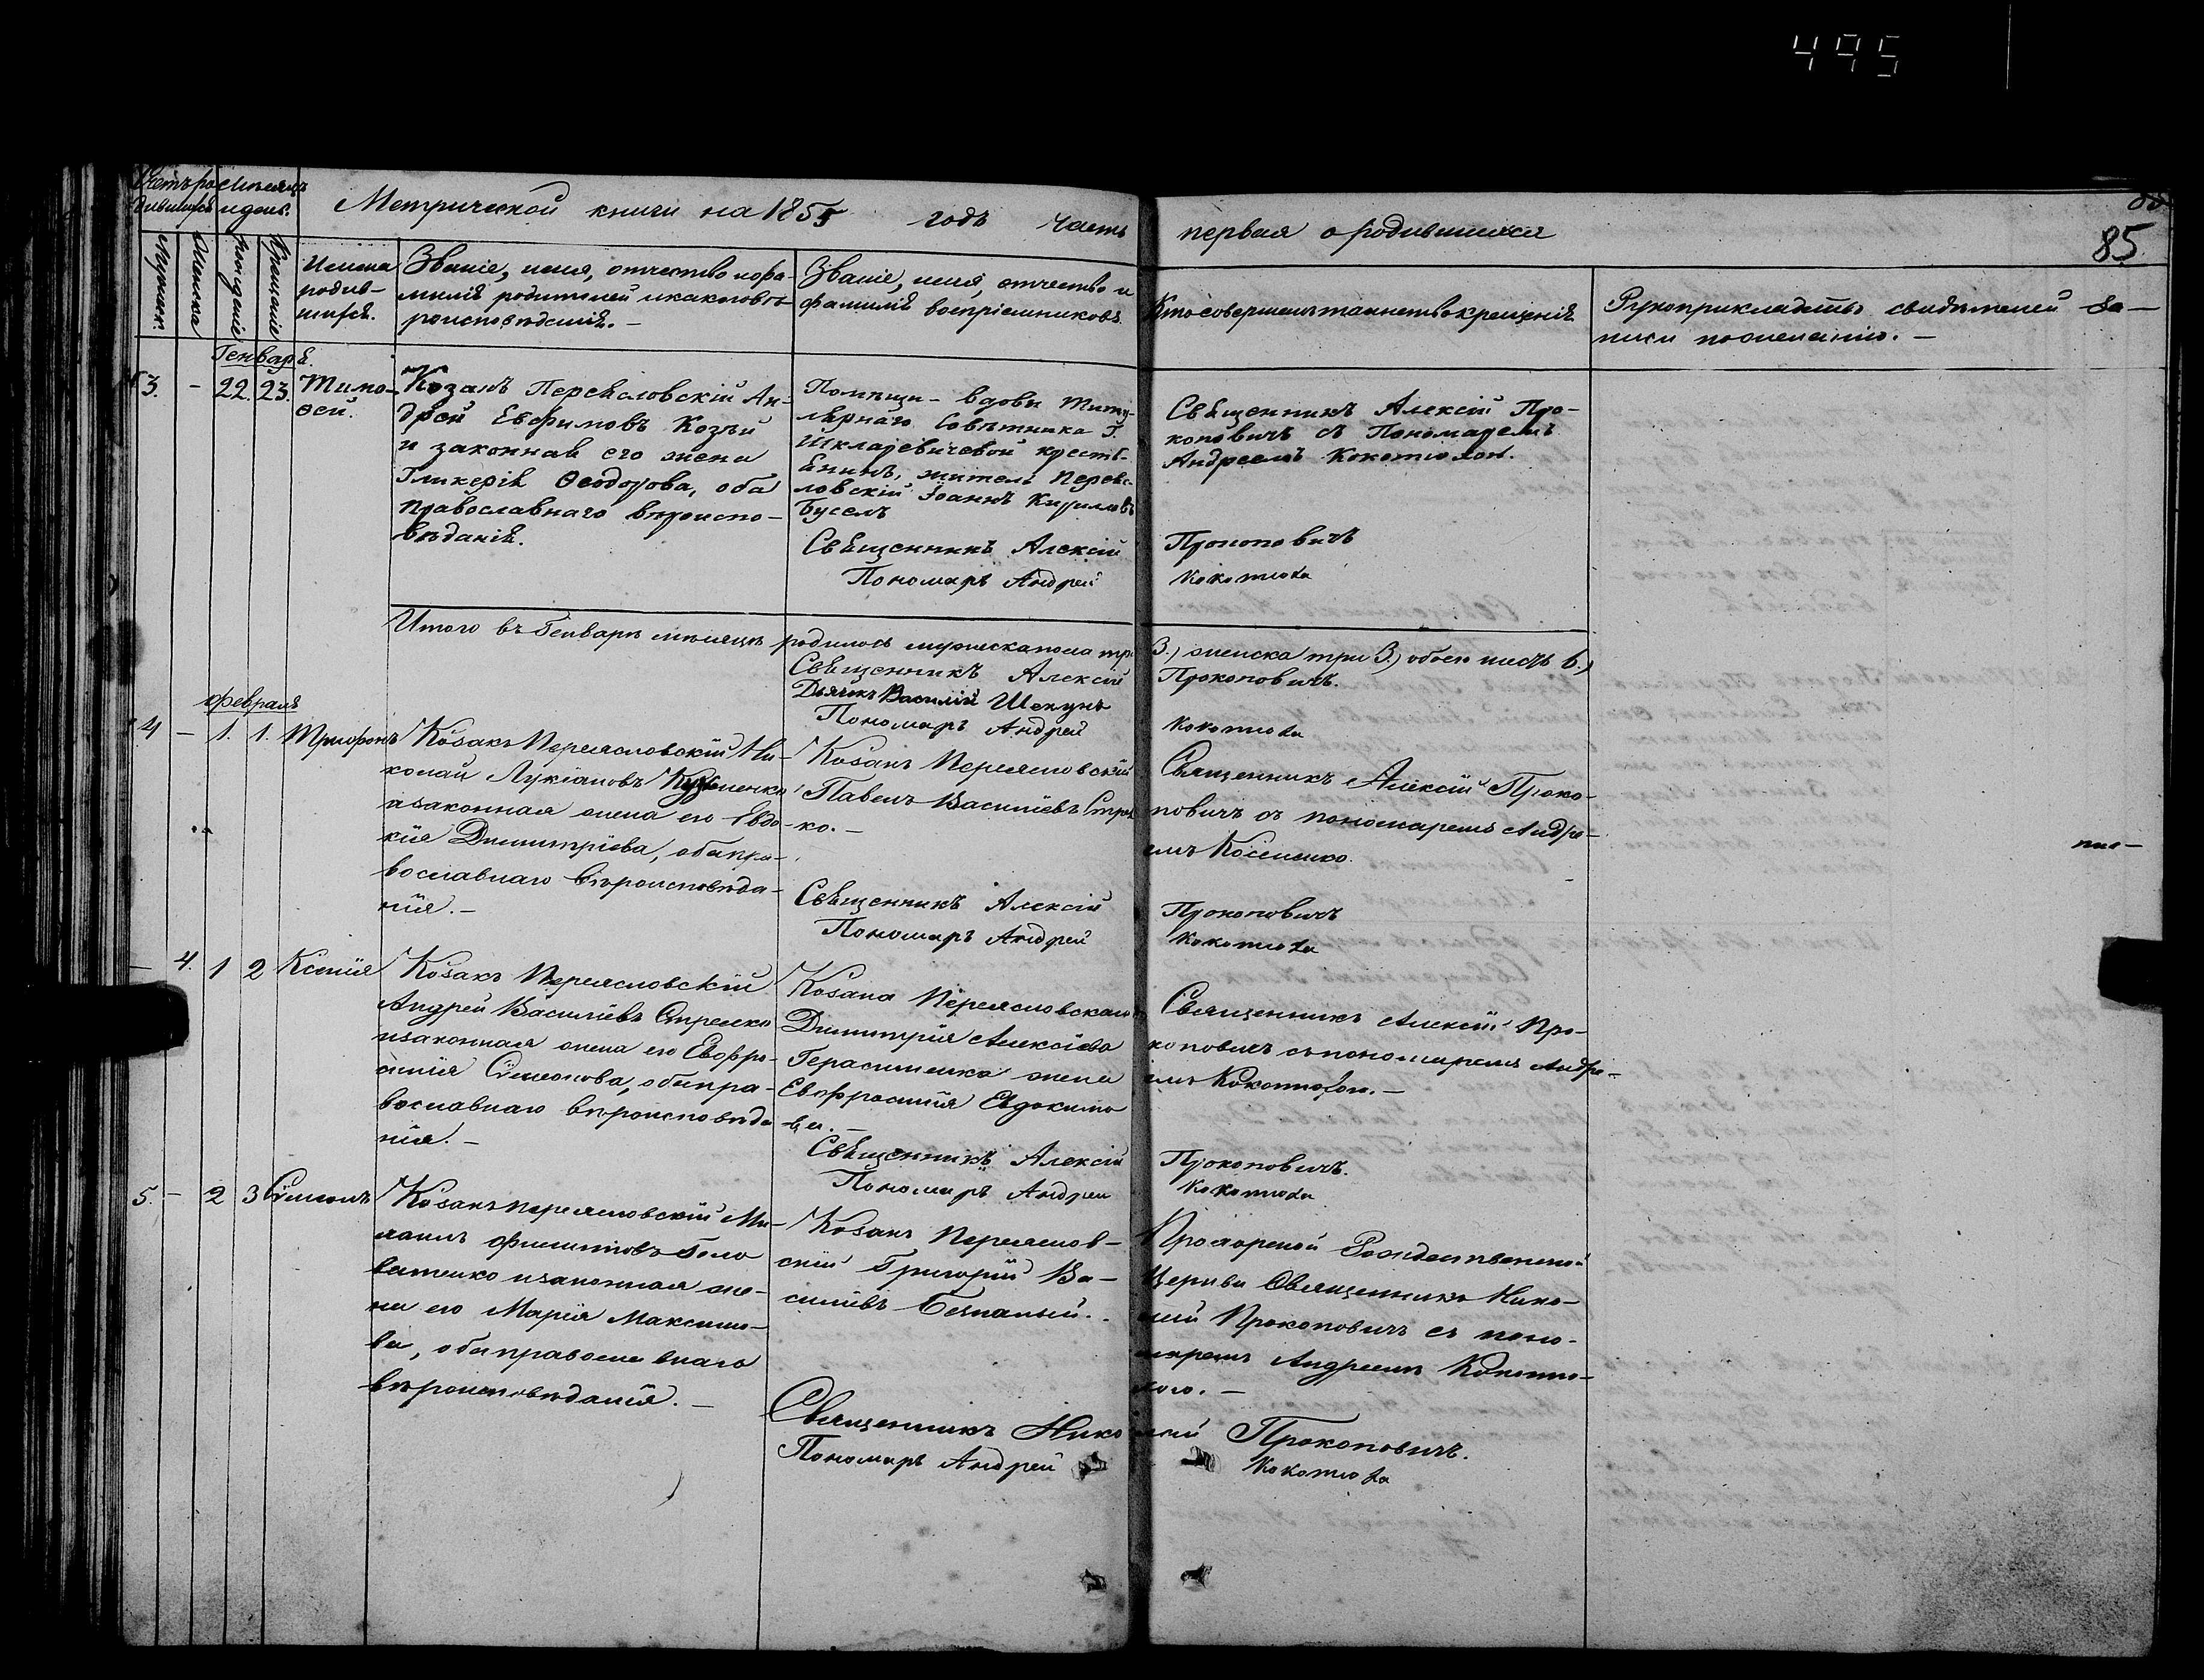 495
85
85.
Счетъ ро-
дившихся
Мѣсяцъ
и день.
Метрической книги на 1855 годъ часть первая о родившихся
Мужеск.
Женска
Рожденіе
Крещеніе
Имена
родив-
шихся.
Званіе, имя, отчество и фа-
милія родителей и какого вѣ-
роисповѣданія. —
Званіе, имя, отчество и
фамилія воспріемниковъ.
Кто совершалъ таинство крещенія
Рукоприкладство свидѣтелей за-
писи по желанію. —
Генварь.
3. — 22. 23. Тимо-
ѳей.
Козакъ Переясловскій Ан-
дрей Евфимовъ Козѣй
и законная его жена
Гликерія Ѳеодорова, оба
православнаго вѣроиспо-
вѣданія.
Помѣщи- вдовы Титу-
лярнаго Совѣтника Г.
Шкларевичевой кресть-
янинъ, житель Переяс-
ловскій Іоаннъ Кирилловъ
Буселъ
Священникъ Алексій Про-
коповичъ съ Пономаремъ
Андреемъ Кокотюхою.
Священникъ Алексій Прокоповичъ
Пономарь Андрей Кокотюха
Итого въ Генварѣ мѣсяцѣ родилось мужеска пола три 3.) женска три 3.) обоего шесть 6.)
Священникъ Алексій Прокоповичъ.
Дьячекъ Василій Шекунъ
Пономарь Андрей Кокотюха
Февраль
4 — 1. 1. Трифонъ
Козакъ Переясловскій Ни-
колай Лукіановъ Кузменко
и законная жена его Евдо-
кія Димитріева, оба пра-
вославнаго вѣроисповѣда-
нія. —
Козакъ Переясловскій
Павелъ Василіевъ
ко. —
Священникъ Алексій Проко-
повичъ съ пономаремъ Андре-
емъ
Священникъ Алексій Прокоповичъ
Пономарь Андрей Кокотюха
— 4. 1 2 Ксенія
Козакъ Переясловскій
Андрей Василіевъ Стрелко
и законная жена его Евфро-
синія Симеонова, оба пра-
вославнаго вѣроисповѣда
нія. —
Козака Переясловскаго
Димитрія Алексіева
Герасименка жена
Евфросинія Евдокимо
ва. —
Священникъ Алексій Про-
коповичъ съ пономаремъ Андре-
емъ Кокотюхою. —
Священникъ Алексій Прокоповичъ.
Пономарь Андрей Кокотюха
5. — 2 3 Симеонъ
Козакъ Переясловскій Ми-
хаилъ Голо
ватенко и законная же-
на его Марія Максимо-
ва, оба православнаго
вѣроисповѣданія. —
Козакъ Переяслов-
скій Григорій Ва-
силіевъ Безпалый.
Рождественской
Церкви Священникъ Нико-
лай Прокоповичъ съ поно-
маремъ Андреемъ Кокотю-
хою. —
Священникъ Николай Прокоповичъ.
Пономарь Андрей Кокотюха